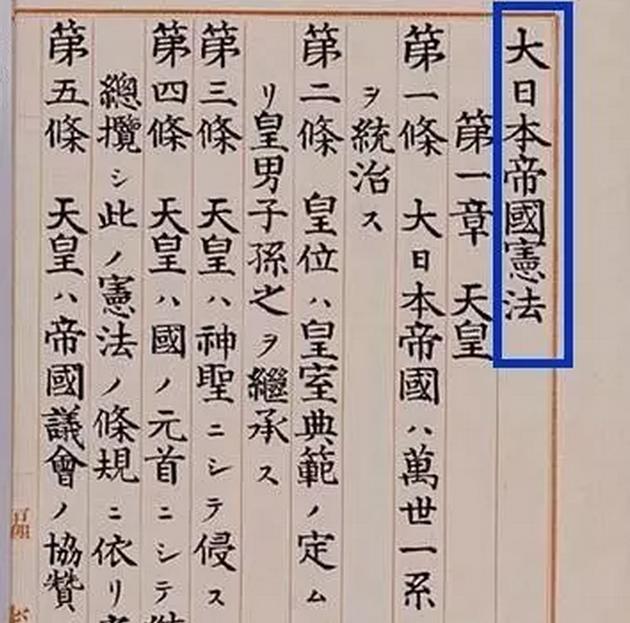 大日本帝國憲法
第一章 天皇
第一條 大日本帝國ハ萬世一系
ヲ統治ス
第二條 皇位ハ皇室典範ノ定ム
リ皇男子孫之ヲ繼承ス
第三條 天皇ハ神聖ニシテ侵ス
第四條 天皇ハ國ノ元首ニシテ
總攬シ此ノ憲法ノ條規ニ依リ
第五條 天皇ハ帝國議會ノ協贊